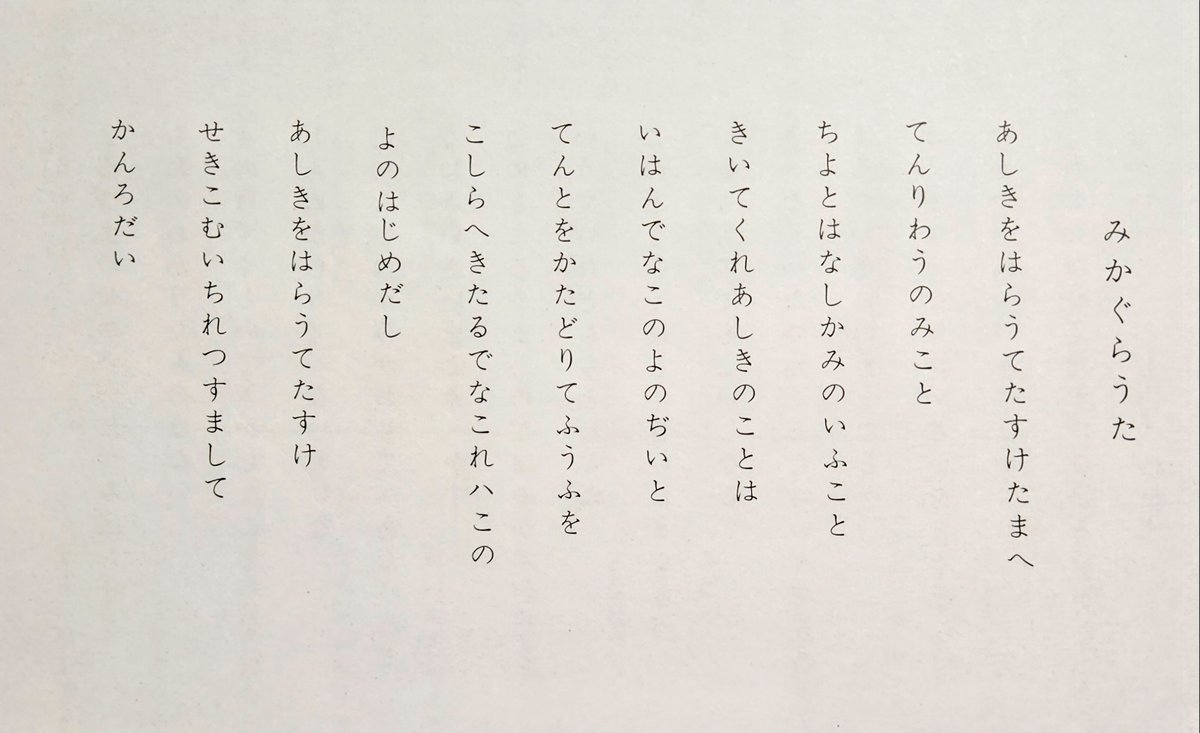 みかぐらうた
あしきをはらうてたすけたまへ
てんりわうのみこと
ちよとはなしかみのいふこと
きいてくれあしきのことは
いはんでなこのよのぢいと
てんとをかたどりてふうふを
こしらへきたるでなこれハこの
よのはじめだし
あしきをはらうてたすけ
せきこむいちれつすまして
かんろだい